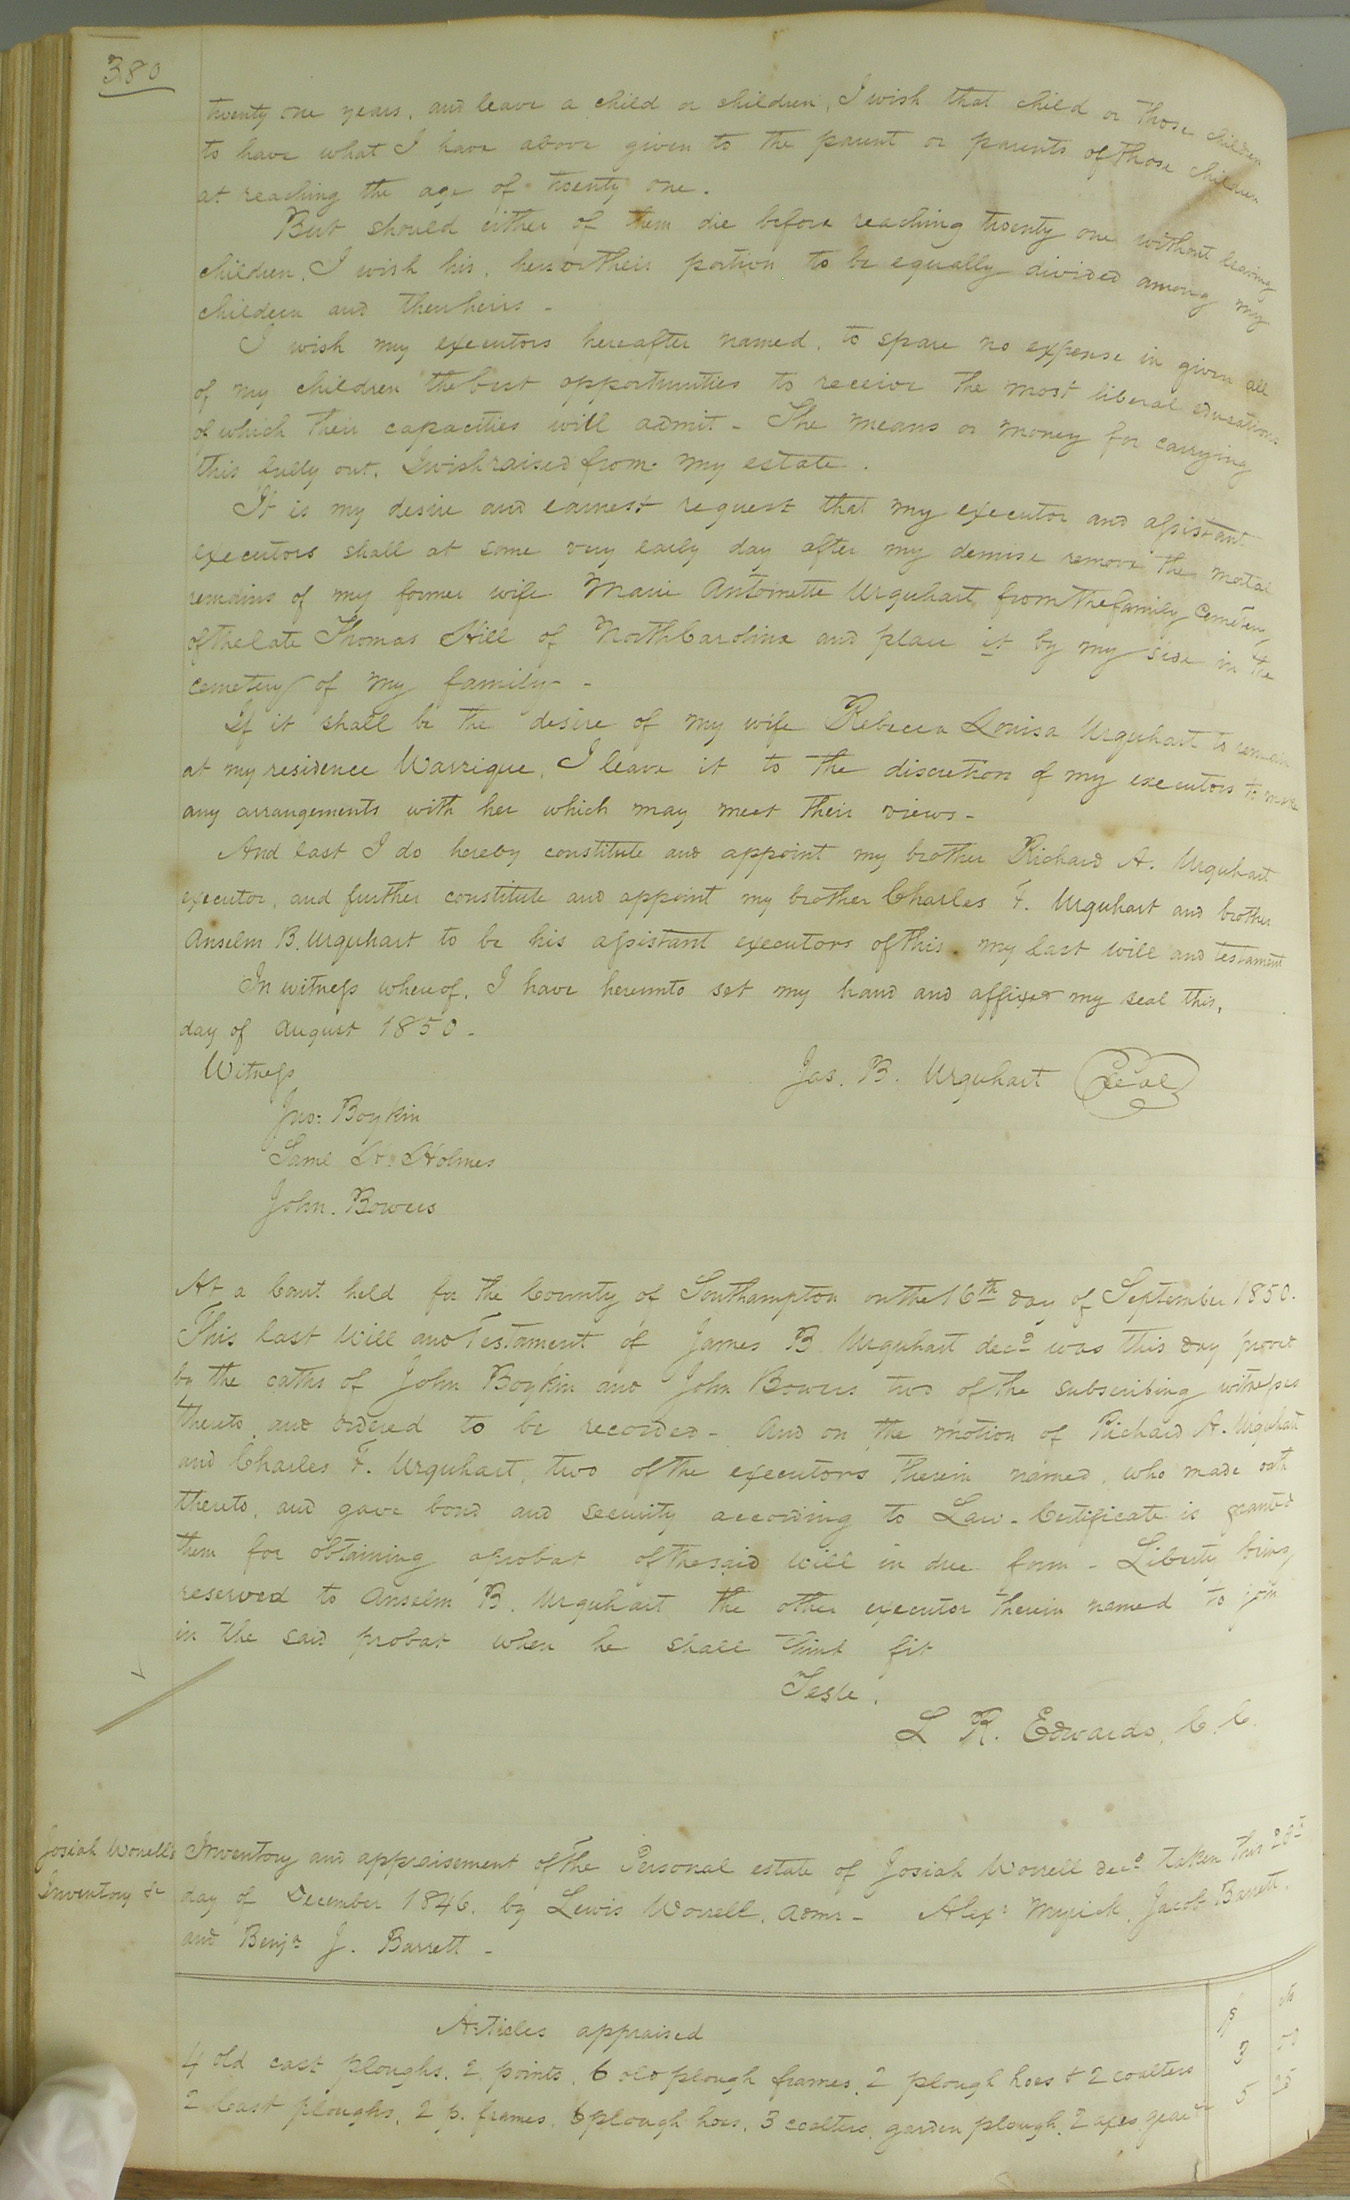 380
twenty one years, and leave a child or children, I wish that child or those children
to have what I have above given to the parent or parents of those children
at reaching the age of twenty one.
But should either of them die before reaching twenty one without leaving
children, I wish his, her or their portion to be equally divided among my
children and their heirs -
I wish my executors hereafter named, to spare no expense in given all
of my children the best opportunities to receive the most liberal educations
of which their capacities will admit - The means or money for carrying
this fully out, I wish raised from my estate.
It is my desire and earnest request that my executor and assistant
executors shall at some very early day after my demise remove the mortal
remains of my former wife Marie Antoinette Urquhart from the family cemetery
of the late Thomas Hill of North Carolina and place it by my side in the
cemetery of my family -
If it shall be the desire of my wife Rebecca Louisa Urquhart to remain
at my residence Warrique, I leave it to the discretion of my executors to make
any arrangements with her which may meet their views -
And last I do hereby constitute and appoint my brother Richard A. Urquhart
executor, and further constitute and appoint my brother Charles F. Urquhart and brother
Anselm B. Urquhart to be his assistant executors of this my last will and testament
In witness whereof, I have hereunto set my hand and affixed my seal this,
day of August 1850 -
Witness
Jas. B. Urquhart Seal
Jno: Boykin
Saml H. Holmes
John. Bowers
At a Court held for the County of Southampton on the 16th day of September 1850.
This last Will and Testament of James B Urquhart decd was this day proved
by the oaths of John Boykin and John Bowers two of the subscribing witnesses
thereto, and ordered to be recorded - And on the motion of Richard A. Urquhart
and Charles F. Urquhart, two of the executors therein named, who made oath
thereto, and gave bond and security according to Law - Certificate is granted
them for obtaining a probat of the said will in due form - Liberty being
reserved to Anselm B. Urquhart the other executor therein named to join
in the said probat when he shall think fit
Teste,
L R. Edwards, C. C.
Josiah Worrell's Inventory and appraisement of the Personal estate of Josiah Worrell decd taken this
Inventory &c day of December 1846, by Lewis Worrell, admr - Alexr Myrick, Jacob Barrett,
and Benjn J. Barrett -
Articles appraised $ cts
4 old cast ploughs, 2 points, 6 old plough frames, 2 plough hoes & 2 coulters 3 00
2 Cast ploughs, 2 p. frames, 6 plough hoes, 3 coulters, garden plough, 2 axes, 5 25